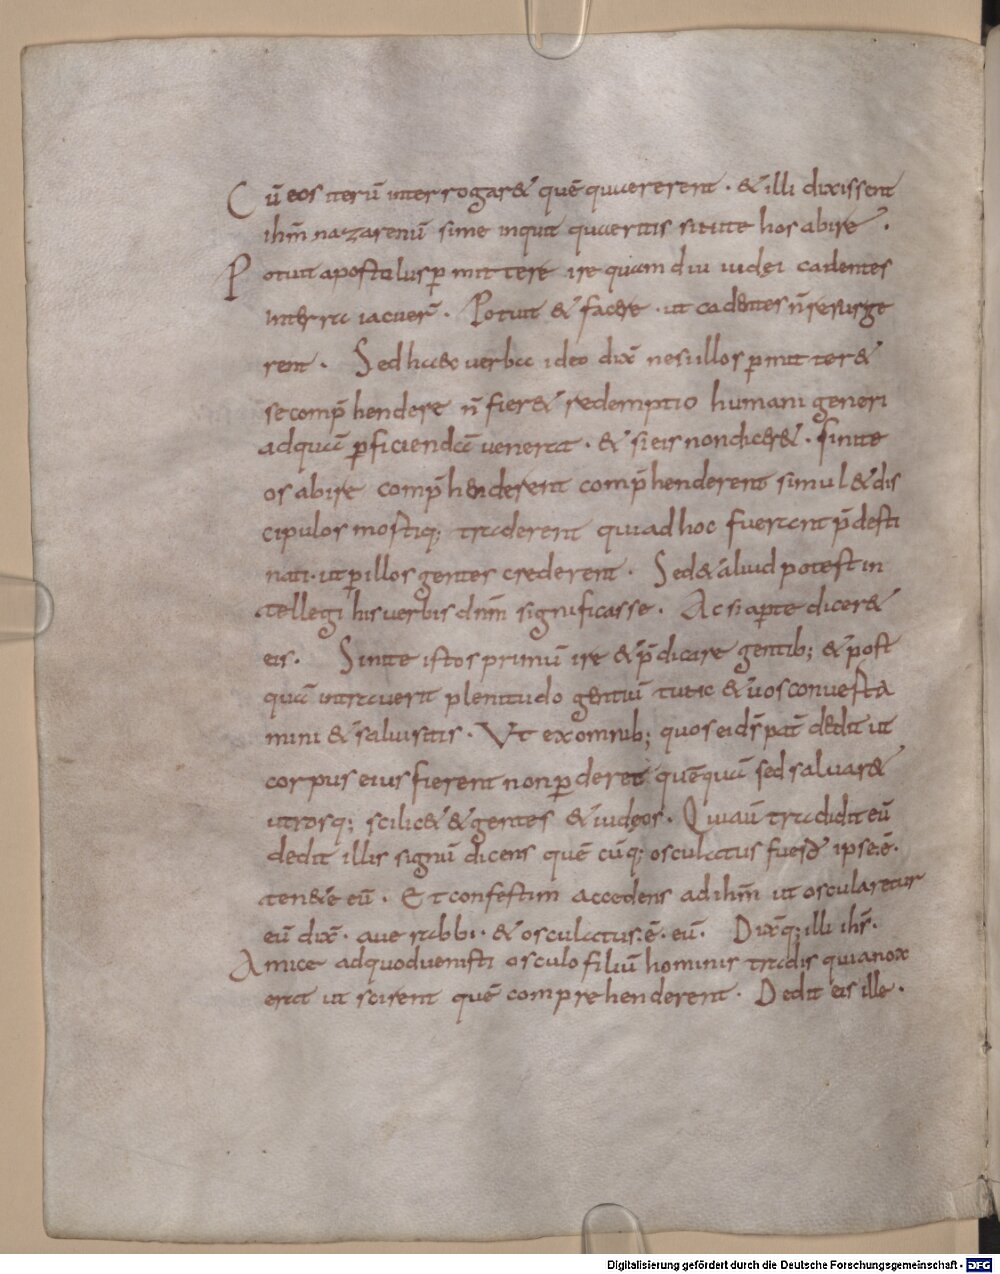 Cū eos iterū interrogar& quē quaererent · & illi dixissent
ihm̄ nazarenū sime inquit quaeritis sinite hos abire ·
Potuit apostolus p̄mittere ire quam diu iudęi cadentes
interra iacuer̄ · Potuit & facere · ut cadentes n̄ resurge
rent · Sed haec verba ideo dix̄ nesi illos p̄mitter&
se comp̄hendere n̄ fier& redemptio humani generi
adquā p̄ficiendā venerat · & si eis non dicer& · sinite
os abire comp̄henderent comp̄henderent simul & dis
cipulos mortiq; traderent qui ad hoc fuerant p̄desti
nati · ut p̄ illos gentes crederent · Sed & aliud potest in
tellegi his verbis dnm̄ significasse · Ac si ap̄te dicer&
eis · Sinite istos primū ire & p̄dicare gentib; & post
quā intraverit plenitudo gentiū tunc & uos convesta
mini & salvi sitis · Ut ex omnib; quos ei dš pat̄ dedit ut
corpus eius fierent non p̄deret quēquā sed salvar&
utrosq; scilic& & gentes & iudęos · Qui aū tradidit eū
dedit illis signū dicens quē cūq; osculatus fuero ipse · ē ·
ten&e eū · Et confestim accedens ad ihm̄ ut oscularetur
eū dix̄ · ave rabbi · & osculatus · ē · eū · Dix̄q; illi ihs̄ ·
Amice adquod venisti osculo filiū hominis tradis quia nox
erat ut scirent quē comprehenderent · Dedit eis ille ·
Digitalisierung gefördert durch die Deutsche Forschungsgemeinschaft - DFG